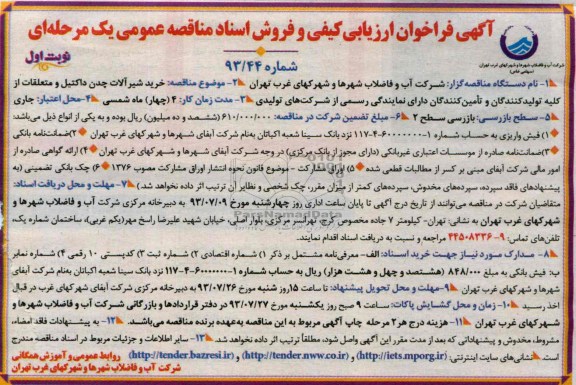 آگهی فراخوان ارزیابی کیفی و فروش اسناد مناقصه عمومی یک مرحله‌ای
شماره ۹۳/۴۴
نوبت اول
شرکت آب و فاضلاب شهرها و شهرکهای غرب تهران
(سهامی خاص)
۱- نام دستگاه مناقصه‌گزار: شرکت آب و فاضلاب شهرها و شهرکهای غرب تهران ۲- موضوع مناقصه: خرید شیرآلات چدن داکتیل و متعلقات از
کلیه تولیدکنندگان و تأمین‌کنندگان دارای نمایندگی رسمی از شرکت‌های تولیدی ۳- مدت زمان کار: ۴ (چهار) ماه شمسی ۴- محل اعتبار: جاری
۵- سطح بازرسی: بازرسی سطح ۲ ۶- مبلغ تضمین شرکت در مناقصه: ۶۱۰/۰۰۰/۰۰۰ (ششصد و ده میلیون) ریال بوده و به یکی از انواع ذیل می‌باشد:
۱) فیش واریزی به حساب شماره ۱-۶۰۰۰۰۰۰۰-۴-۱۱۷ نزد بانک سینا شعبه اکباتان به‌نام شرکت آبفای شهرها و شهرکهای غرب تهران ۲) ضمانت‌نامه بانکی
۳) ضمانت‌نامه صادره از موسسات اعتباری غیربانکی (دارای مجوز از بانک مرکزی) در وجه شرکت آبفای شهرها و شهرکهای غرب تهران ۴) ارائه گواهی صادره از
امور مالی شرکت آبفای مبنی بر کسر از مطالبات قطعی شده ۵) اوراق مشارکت - موضوع قانون نحوه انتشار اوراق مشارکت مصوب ۱۳۷۶ ۶) چک بانکی تضمینی (به
پیشنهادهای فاقد سپرده، سپرده‌های مخدوش، سپرده‌های کمتر از میزان مقرر، چک شخصی و نظایر آن ترتیب اثر داده نخواهد شد.) ۷- مهلت و محل دریافت اسناد:
متقاضیان شرکت در مناقصه می‌توانند از تاریخ درج آگهی تا پایان ساعت اداری روز چهارشنبه مورخ ۹۳/۰۷/۰۹ به دبیرخانه مرکزی شرکت آب و فاضلاب شهرها و
شهرکهای غرب تهران به نشانی: تهران- کیلومتر ۷ جاده مخصوص کرج، تهرانسر مرکزی، بلوار اصلی، خیابان شهید علیرضا راسخ مهر (یکم غربی)، ساختمان شماره یک،
تلفن‌های تماس: ۹-۴۴۵۰۸۳۳۶ مراجعه و نسبت به دریافت اسناد اقدام نمایند.
۸- مدارک مورد نیاز جهت خرید اسناد: الف- معرفی‌نامه مشتمل بر ذکر ۱) شماره اقتصادی ۲) شماره ثبت ۳) کدپستی ۱۰ رقمی ۴) شماره نمابر
ب: فیش بانکی به مبلغ ۸۴۸/۰۰۰ (هشتصد و چهل و هشت هزار) ریال به حساب شماره ۱-۶۰۰۰۰۰۰۰-۴-۱۱۷ نزد بانک سینا شعبه اکباتان به‌نام شرکت آبفای
شهرها و شهرکهای غرب تهران ۹- مهلت و محل تحویل پیشنهاد: تا ساعت ۱۵ روز شنبه مورخ ۹۳/۰۷/۲۶ به دبیرخانه مرکزی شرکت آبفای شهرکهای غرب در قبال
اخذ رسید ۱۰- زمان و محل گشایش پاکات: ساعت ۹ صبح روز یکشنبه مورخ ۹۳/۰۷/۲۷ در دفتر قراردادها و بازرگانی شرکت آب و فاضلاب شهرها و
شهرکهای غرب تهران ۱۱- هزینه درج هر ۲ مرحله چاپ آگهی مربوط به این مناقصه به‌عهده برنده مناقصه می‌باشد. ۱۲- به پیشنهادات فاقد امضاء،
مشروط، مخدوش و پیشنهاداتی که بعد از مدت مقرر این آگهی واصل شود، مطلقاً ترتیب اثر داده نخواهد شد. ۱۳- سایر اطلاعات و جزئیات مربوط در اسناد مناقصه مندرج
است نشانی‌های سایت اینترنتی: (http://iets.mporg.ir) و (http://tender.nww.co.ir) و (http://tender.bazresi.ir)
روابط عمومی و آموزش همگانی
شرکت آب و فاضلاب شهرها و شهرکهای غرب تهران
ParsNamadData